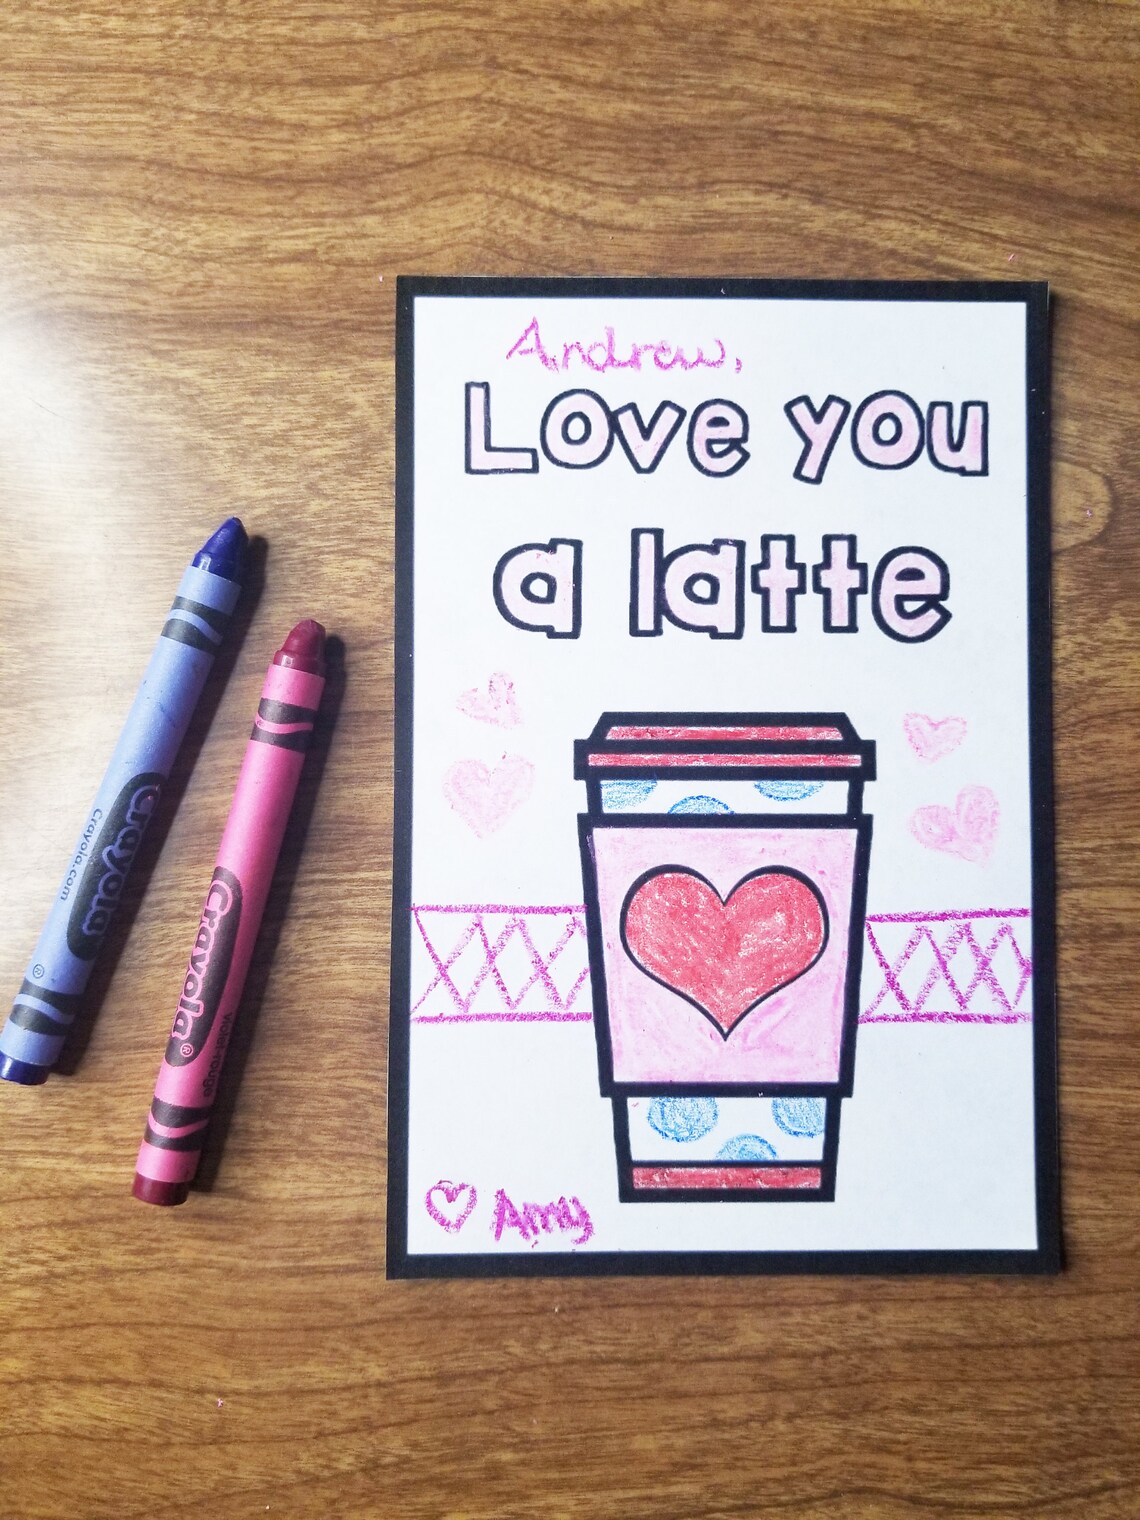 Andrew,
Love you
a latte
♡ Amy
Crayola
Crayola.com
®
Crayola®
violet-rouge